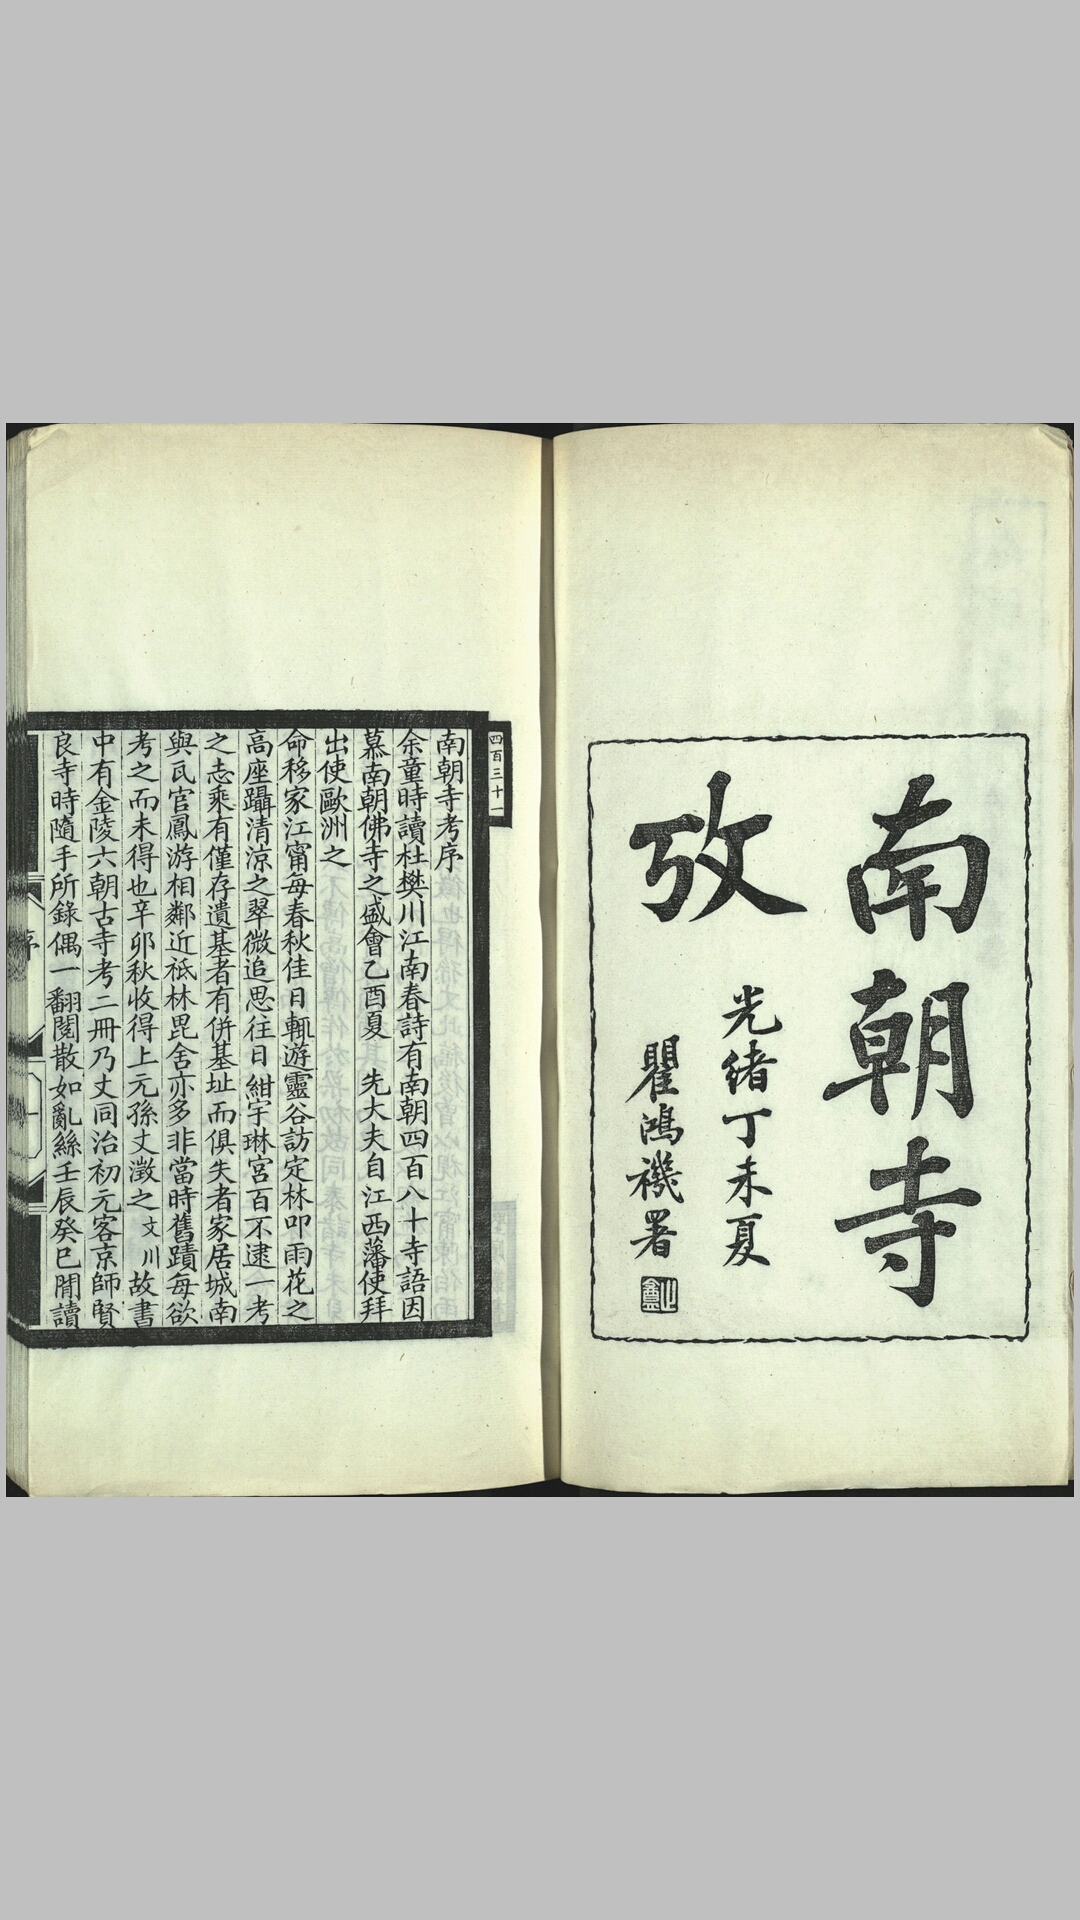 南朝寺
攷
光緒丁未夏
瞿鴻禨署
四百三十一
南朝寺考序
余童時讀杜樊川江南春詩有南朝四百八十寺語因
慕南朝佛寺之盛會乙酉夏　先大夫自江西藩使拜
出使歐洲之
命移家江甯每春秋佳日輒遊靈谷訪定林叩雨花之
高座躡清涼之翠微追思往日紺宇琳宮百不逮一考
之志乘有僅存遺基者有併基址而俱失者家居城南
與瓦官鳳游相鄰近祗林毘舍亦多非當時舊蹟每欲
考之而未得也辛卯秋收得上元孫丈澂之文川故書
中有金陵六朝古寺考二冊乃丈同治初元客京師賢
良寺時隨手所錄偶一翻閱散如亂絲壬辰癸巳閒讀
序